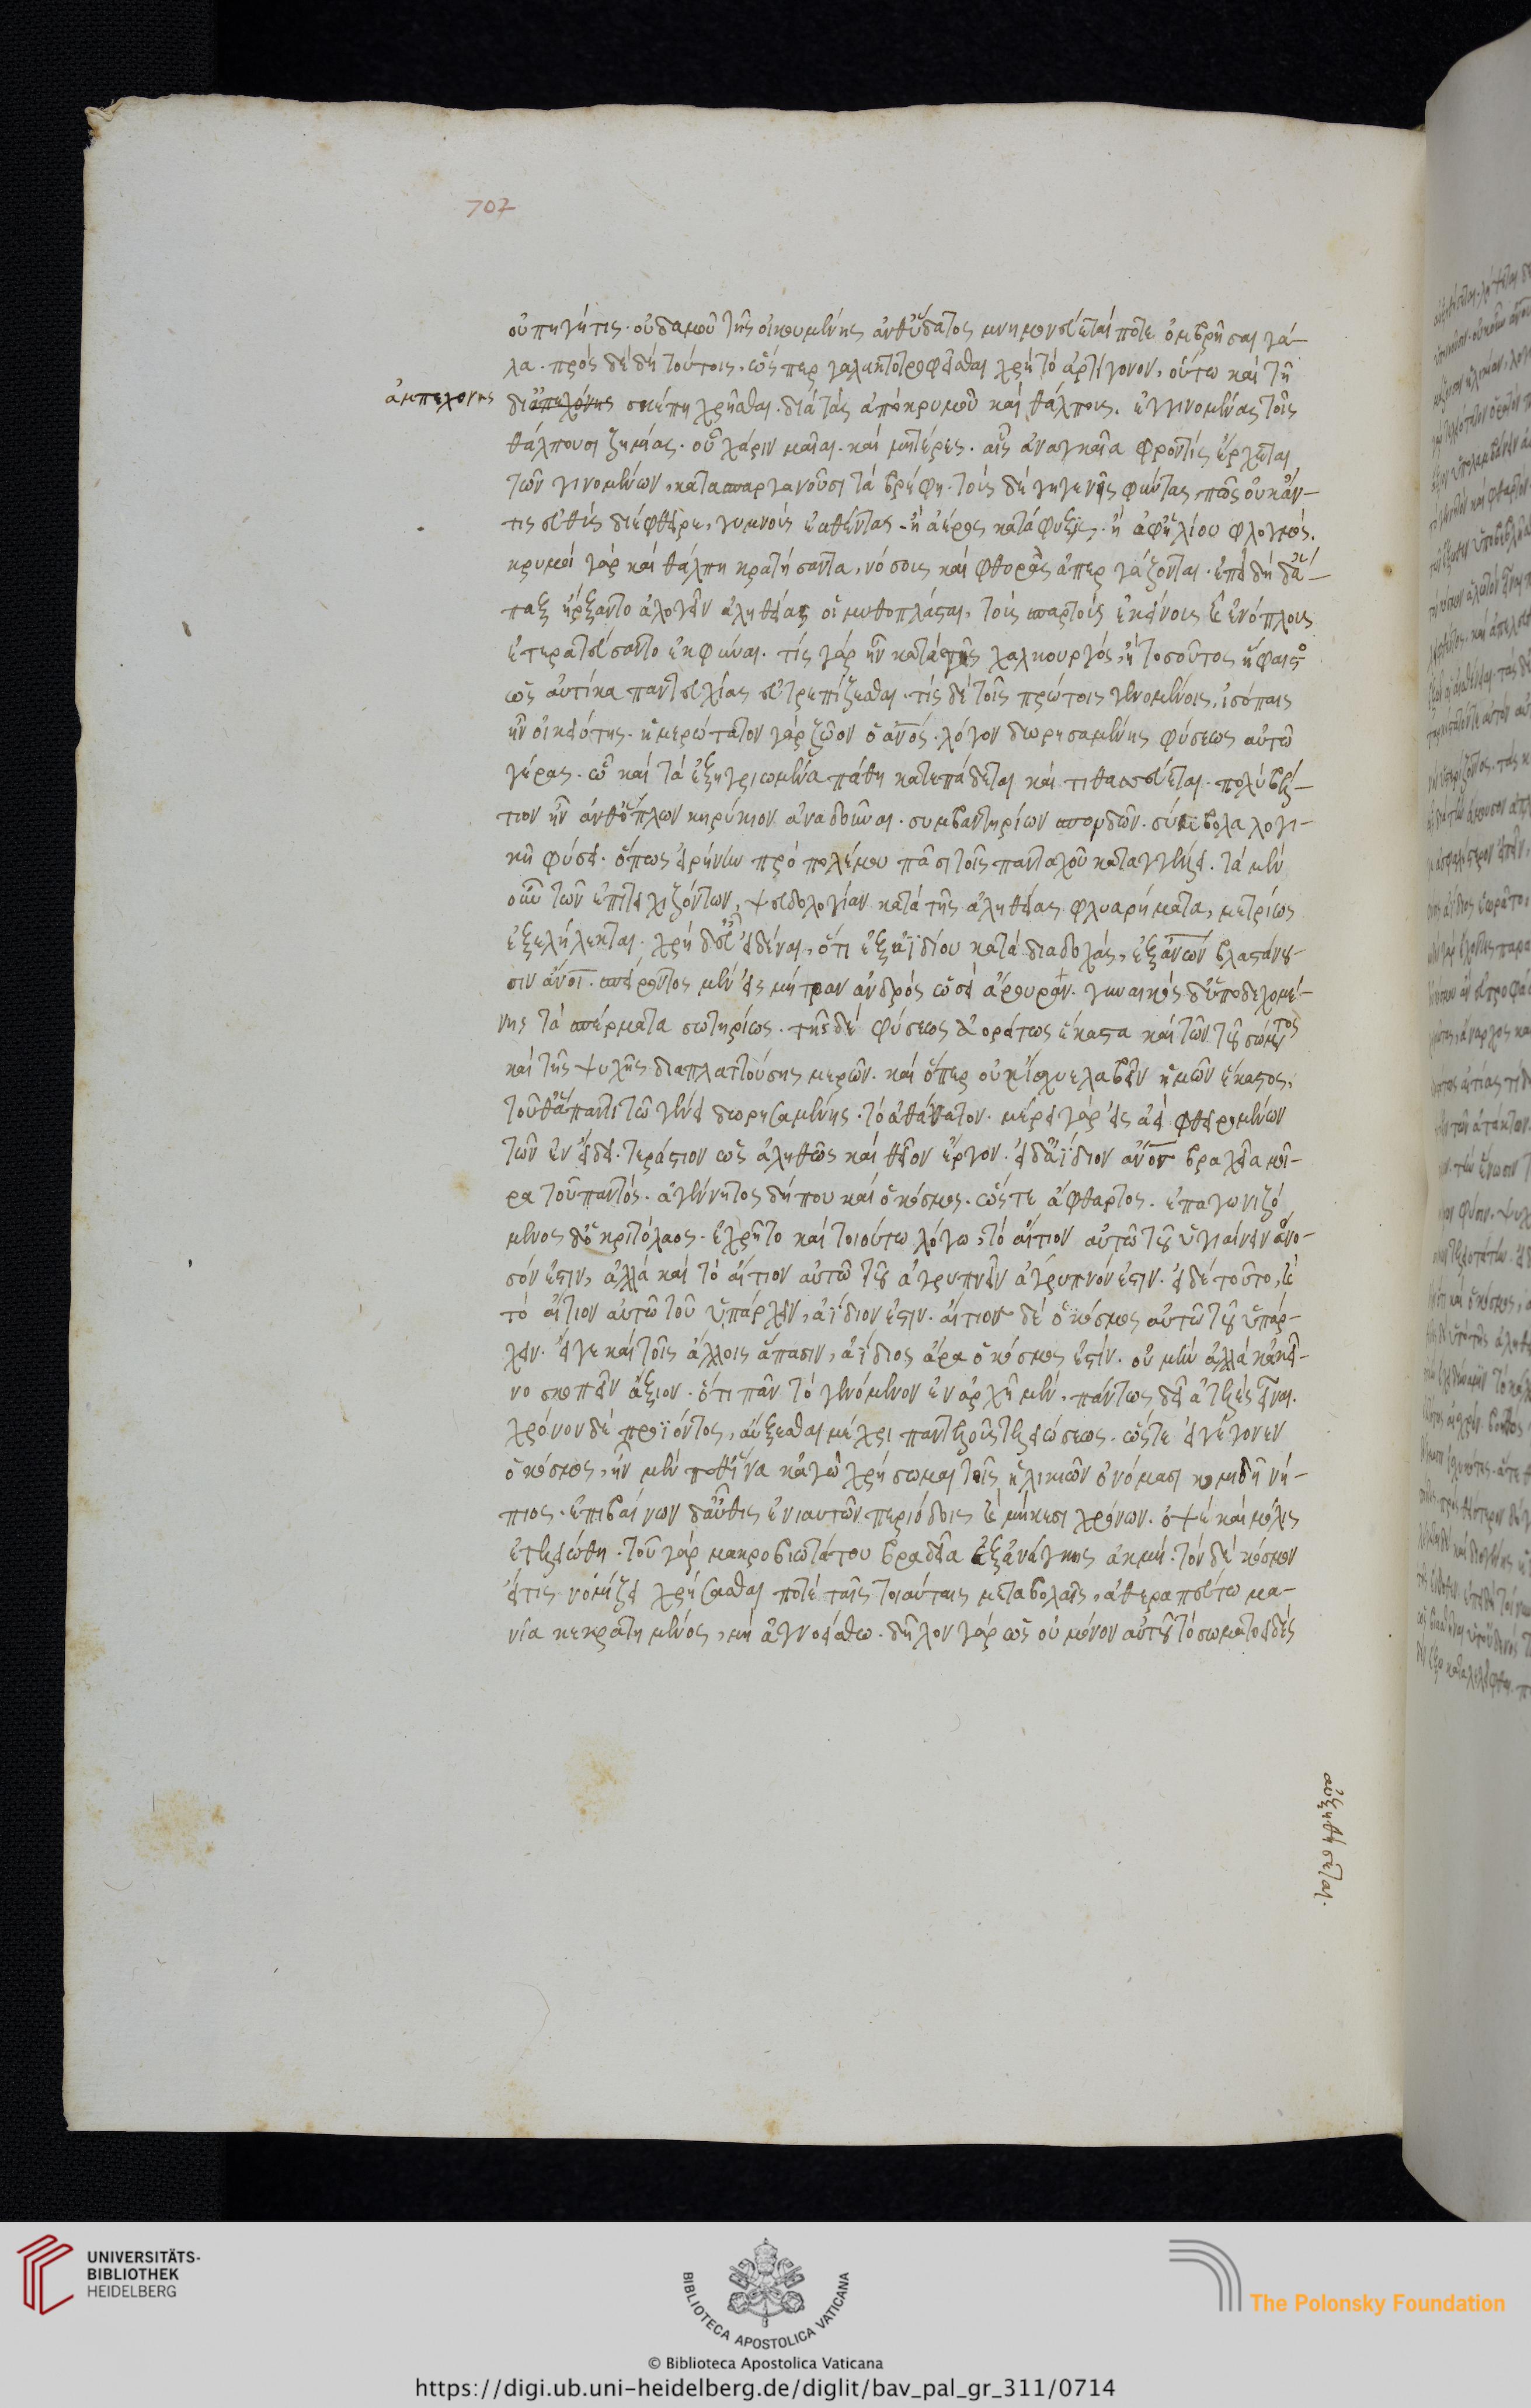 707
οὐ πηγή τις. οὐδαμοῦ τῆς οἰκουμένης ἀνθ' ὕδατος μνημονεύεταί ποτε ὀμβρῆσαι γά-
λα. πρὸς δὲ δὴ τούτοις, ὥσπερ γαλακτοτροφεῖσθαι χρὴ τὸ ἀρτίγονον, οὕτω καὶ τῆ
ἀμπεχόνης
δι' ἀπεχόνης σκέπη χρῆσθαι. διὰ τὰς ἀπὸ κρυμοῦ καὶ θάλπους. ἐγγινομένας τοῖς
θάλπουσι ζημίας. οὗ χάριν μαῖαι. καὶ μητέρες. αἷς ἀναγκαία φροντὶς ἔρχεται
τῶν γινομένων, κατασπαργανοῦσι τὰ βρέφη. τοὺς δὲ γηγενῆς φύντας, πῶς οὐκ ἄν-
τις εὐθὺς διέφθειρε, γυμνοὺς ἐαθέντας - ἢ ἀέρος κατάψυξις. ἢ ἀφ' ἡλίου φλογμός.
κρυμοὶ γὰρ καὶ θάλπη κρατήσαντα, νόσους καὶ φθορὰς ἀπεργάζονται. ἐπειδὴ δ' ἅ-
παξ ἤρξαντο ἀλογεῖν ἀληθείας οἱ μυθοπλάσται, τοὺς σπαρτοὺς ἐκείνους καὶ ἐνόπλους
ἐτερατεύσαντο ἐκφῦναι. τίς γὰρ ἦν κατὰ γῆς χαλκουργός, ἢ τοσοῦτος ἥφαιστο
ὡς αὐτίκα παντευχίας εὐτρεπίζεσθαι. τίς δὲ τοῖς πρώτοις γενομένοις, ἰσόπαις
ἦν οἰκειότης. ἡμερώτατον γὰρ ζῶον ὁ ἄνος. λόγον δωρησαμένης φύσεως αὐτῶ
γέρας. ὧ καὶ τὰ ἐξηγριωμένα πάθη κατεπάδεται καὶ τιθασσεύεται. πολὺ βέλ-
τιον ἦν ἀνθ' ὅπλων κηρύκιον ἀναδοῦναι. συμβαντηρίων σπονδῶν. σύμβολα λογι-
κῆ φύσει. ὅπως εἰρήνην πρὸ πολέμου πᾶσι τοῖς πανταχοῦ καταγγέλλει. τὰ μὲν
οὖν τῶν ἐπιτειχιζόντων, ψευδολογίαν κατὰ τῆς ἀληθείας φλυαρήματα, μετρίως
ἐξελήλεκται. χρὴ δ' εὖ εἰδέναι, ὅτι ἐξ ἀϊδίου κατὰ διαδοχάς, ἐξ ἄνων βλαστάνου-
σιν ἄνοι. σπείροντος μὲν εἰς μήτραν ἀνδρὸς ὡσεὶ ἄρουραν. γυναικὸς δ' ὑποδεχομέ-
νης τὰ σπέρματα σωτηρίως. τῆς δὲ φύσεως ἀοράτως ἕκαστα καὶ τῶν τοῦ σώμτος
καὶ τῆς ψυχῆς διαπλαττούσης μερῶν. καὶ ὅπερ οὐκ ἴσχυε λαβεῖν ἡμῶν ἕκαστος,
τοῦθ' ἅπαντι τῶ γένει δωρησαμένης. τὸ ἀθάνατον. μένει γὰρ εἰς ἀεὶ φθειρομένων
τῶν ἐν εἴδει. τεράστιον ὡς ἀληθῶς καὶ θεῖον ἔργον. εἰ δ' ἀΐδιον ἄνον βραχεῖα μοῖ-
ρα τοῦ παντός. ἀγένητος δήπου καὶ ὁ κόσμος. ὥστε ἄφθαρτος. ἐπαγωνιζό
μενος δ' ὁ κριτόλαος. ἐχρῆτο καὶ τοιούτω λόγω, τὸ αἴτιον αὐτῶ τοῦ ὑγιαίνειν ἄνο-
σόν ἐστιν, ἀλλὰ καὶ τὸ αἴτιον αὐτῶ τοῦ ἀγρυπνεῖν ἄγρυπνόν ἐστιν. εἰ δὲ τοῦτο, καὶ
τὸ αἴτιον αὐτῶ τοῦ ὑπάρχειν, ἀΐδιόν ἐστιν. αἴτιον δὲ ὁ κόσμος αὐτῶ τοῦ ὑπάρ-
χειν. εἴγε καὶ τοῖς ἄλλοις ἅπασιν, ἀΐδιος ἄρα ὁ κόσμος ἐστίν. οὐ μὴν ἀλλὰ κἀκεῖ-
νο σκοπεῖν ἄξιον. ὅτι πᾶν τὸ γενόμενον ἐν ἀρχῆ μὲν, πάντως δεῖ ἀτελὲς εἶναι.
χρόνου δὲ προϊόντος, αὔξεσθαι μέχρι παντελοῦς τελειώσεως. ὥστε εἰ γέγονεν
ὁ κόσμος, ἦν μὲν ποθ' ἵνα κἀγὼ χρήσωμαι τοῖς ἡλικιῶν ὀνόμασι κομιδῆ νή-
πιος. ἐπιβαίνων δ' αὖθις ἐνιαυτῶν περιόδοις καὶ μήκεσι χρόνων. ὀψὲ καὶ μόλις
ἐτελειώθη. τοῦ γὰρ μακροβιωτάτου βραδεῖα ἐξ ἀνάγκης ἀκμή. τὸν δὲ κόσμον
εἴ τις νόμιζει χρήσασθαί ποτε ταῖς τοιαύταις μεταβολαῖς, ἀθεραπεύτω μα-
νία κεκρατημένος, μὴ ἀγνοείσθω. δῆλον γὰρ ὡς οὐ μόνον αὐτοῦ τὸ σωματοειδὲς
αὐξηθήσεται.
UNIVERSITÄTS-
BIBLIOTHEK
HEIDELBERG
BIBLIOTECA APOSTOLICA VATICANA
The Polonsky Foundation
© Biblioteca Apostolica Vaticana
https://digi.ub.uni-heidelberg.de/diglit/bav_pal_gr_311/0714